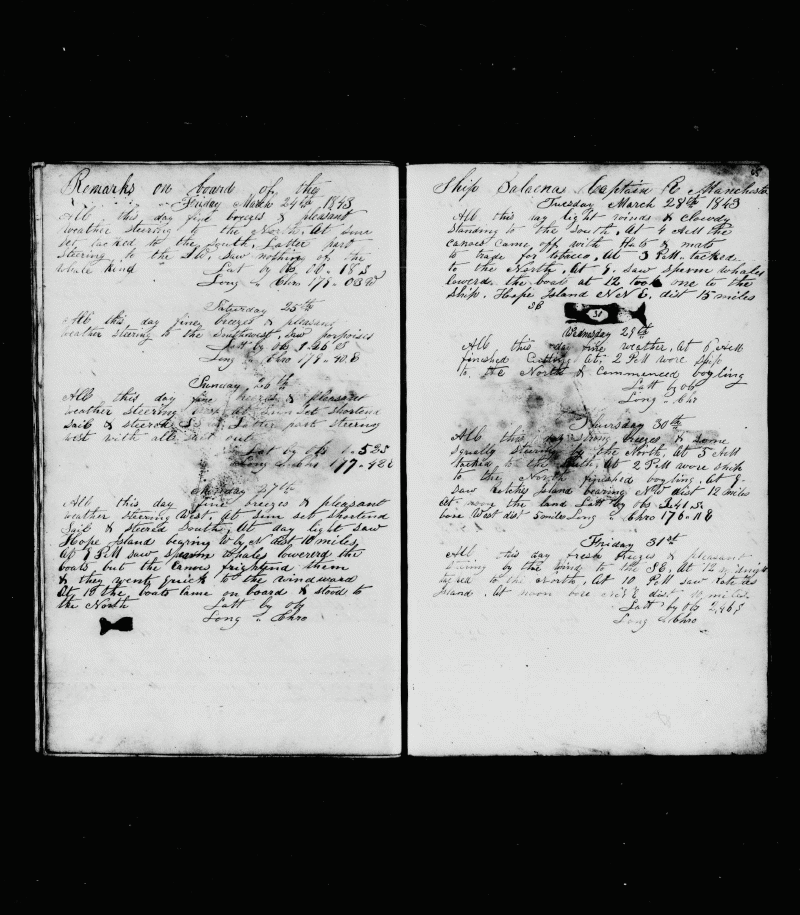 Remarks on board of the
Friday March 24th 1843
All this day fine breezes & pleasant
weather steering to the North. At sun
set tacked to the South. Latter part
steering to the SW. Saw nothing of the
whale kind Latt by Ob 00-18 S
Long " Chro 179-03 W
Saturday 25th
All this day fine breezes & pleasant
weather steering to the Southwest. Saw porpoises
Latt by Ob
Long " Chro 179-40 E
Sunday 26th
All this day fine breezes & pleasant
weather steering West. At Sun set shortend
Sail & steered Latter part steering
west with all sail out
Latt by Obs 1-52 S
Long " Chro 177-42 E
Monday 27th
All this day fine breezes & pleasant
weather steering West. At Sun set shortend
Sail & steered South. At day light saw
Hope Island bearing W by N dist 10 miles
At 9 PM saw sperm whales lowererd the
boats but the Canoes frightend them
& they went quick to the windward
At 12 the boats came on board & stood to
the North Latt by Ob
Long " Chro
Ship Balaena Captain R Manchester
Tuesday March 28th 1843
All this day light winds & cloudy
standing to the South. At 4 AM the
canoes came off with Hats & mats
to trade for tobacco. At 3 PM tacked
to the North. At 9. saw sperm whales
lowerd the boat at 12 took one to the
Ship. Hope Island NNE. dist 15 miles
SB
38
Wednesday 29th
All this day fine weather. At 6 AM
finished Cutting. At 2 PM wore ship
to the North & Commenced boyling
Latt by Ob
Long " Chr
Thursday 30th
All this day strong breezes & some
squally steering by the North. At 5 AM
tacked to the South. At 2 PM wore ship
to the North finished boyling. At 9.
saw Rotches Island bearing NW dist 12 miles
At noon the land Latt by Obs 2.41 S.
bore West dist 5 miles Long " Chro 176-11 E
Friday 31st
All this day fresh breezes & pleasant
steering by the wind to the SE. At 12 midnight
tacked to the North. At 10 PM saw Rotches
Island. At noon bore dist 10 miles.
Latt by Ob 2,46 S
Long " Chro